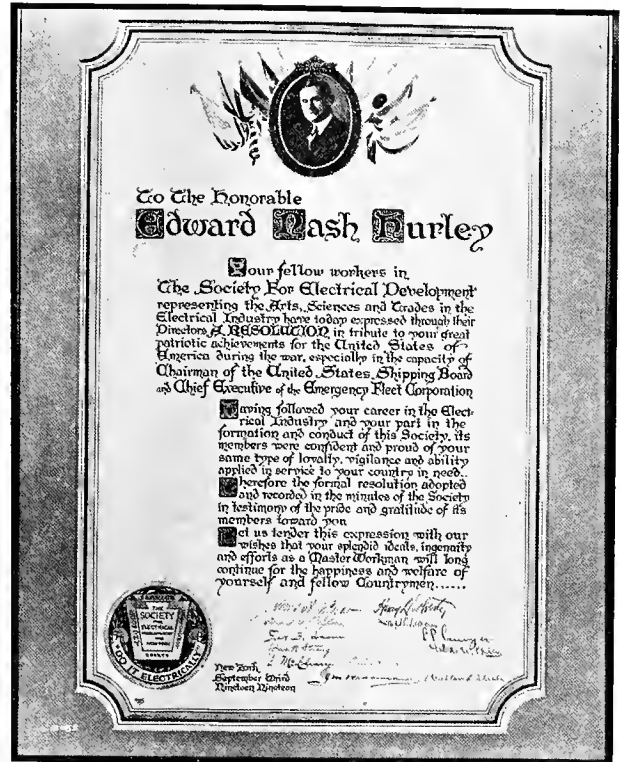 To The Honorable
Edward Nash Hurley
Your fellow workers in
The Society For Electrical Development
representing the Arts, Sciences and Trades in the
Electrical Industry have today expressed through their
Directors A RESOLUTION in tribute to your great
patriotic achievements for the United States of
America during the war, especially in the capacity of
Chairman of the United States Shipping Board
and Chief Executive of the Emergency Fleet Corporation
Having followed your career in the Elect-
rical Industry and your part in the
formation and conduct of this Society, its
members were confident and proud of your
same type of loyalty, vigilance and ability
applied in service to your country in need.
Therefore the formal resolution adopted
and recorded in the minutes of the Society
in testimony of the pride and gratitude of its
members toward you
Let us tender this expression with our
wishes that your splendid ideals, ingenuity
and efforts as a Master Workman will long
continue for the happiness and welfare of
yourself and fellow Countrymen......
THE
SOCIETY
FOR
ELECTRICAL
DEVELOPMENT
"DO IT ELECTRICALLY"
New York
September Third
Nineteen Nineteen